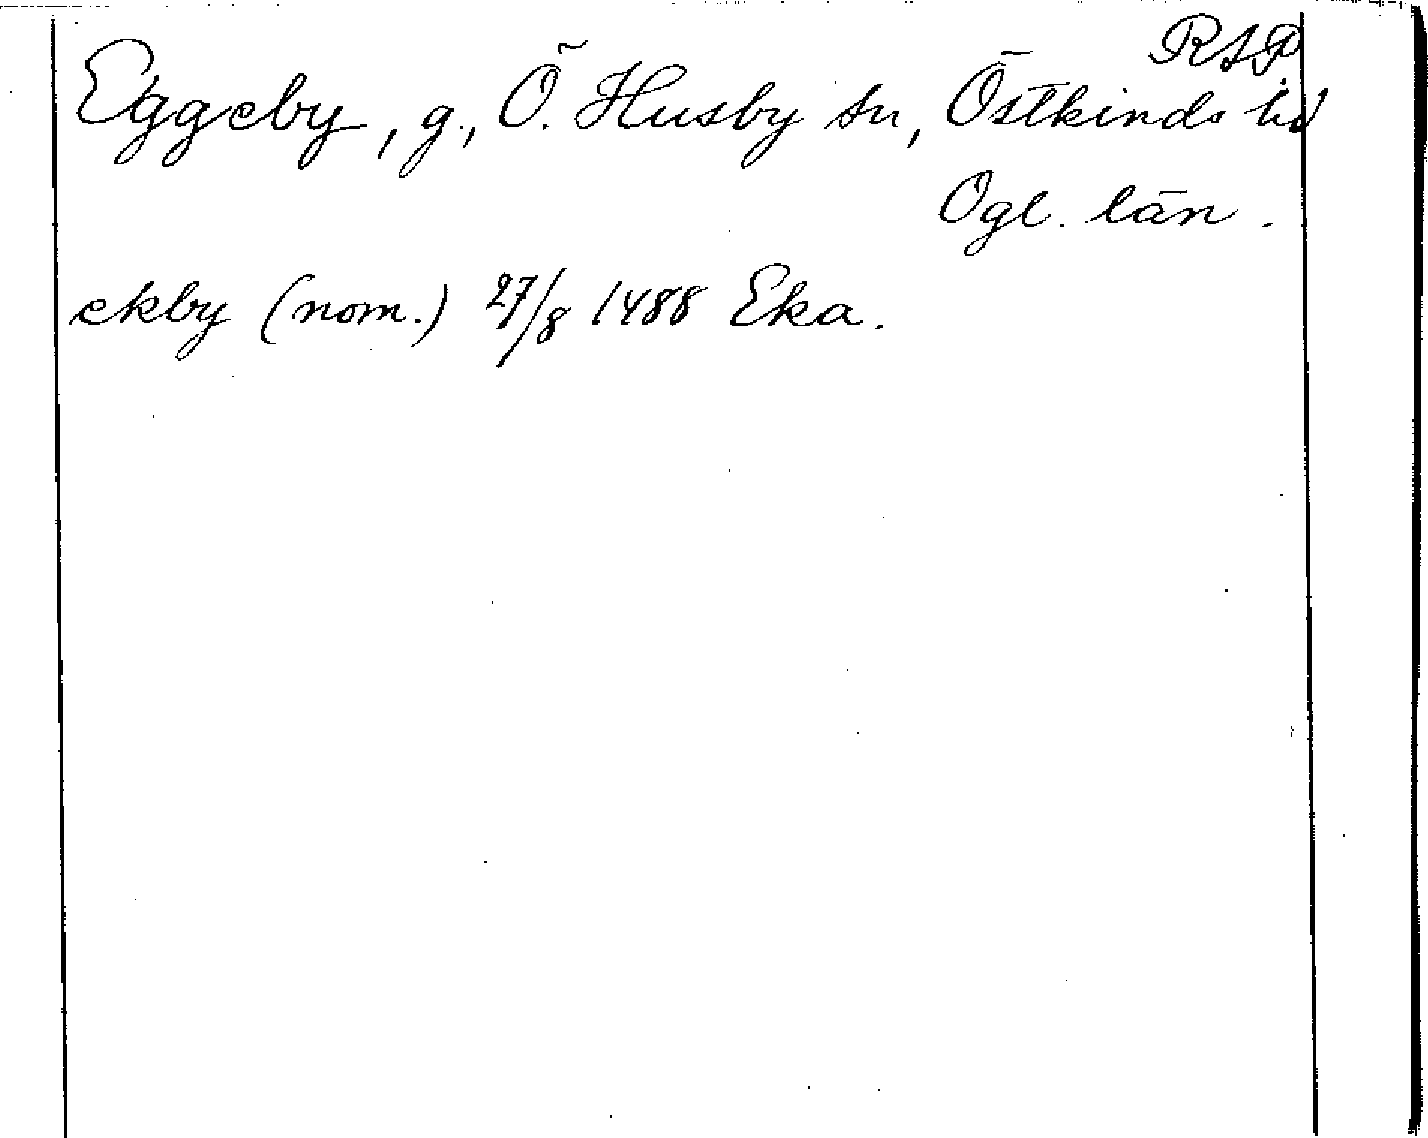 RAP
Eggeby, g., Ö. Husby sn, Östkinds hd
Ögl. län.
ekby (nom.) 27/8 1488 Eka.